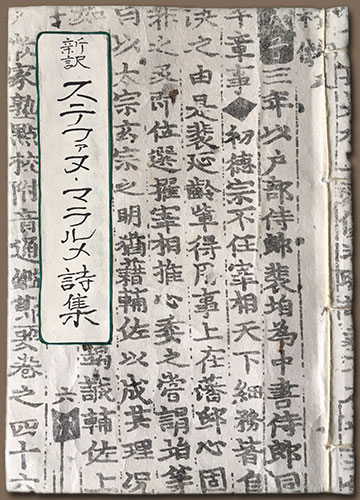 新訳
ステファヌ・マラルメ詩集
三年以戸部侍郎裴垍為中書侍郎同
平章事◆初徳宗不任宰相天下細務皆自
决之由是裴延齡輩得用事上在藩邸心固
非之及即位選擢宰相推心委之嘗謂垍等
曰以太宗玄宗之明猶藉輔佐以成其理况
竭誠輔佐上
六
家塾點校附音通鑑節要卷之四十六